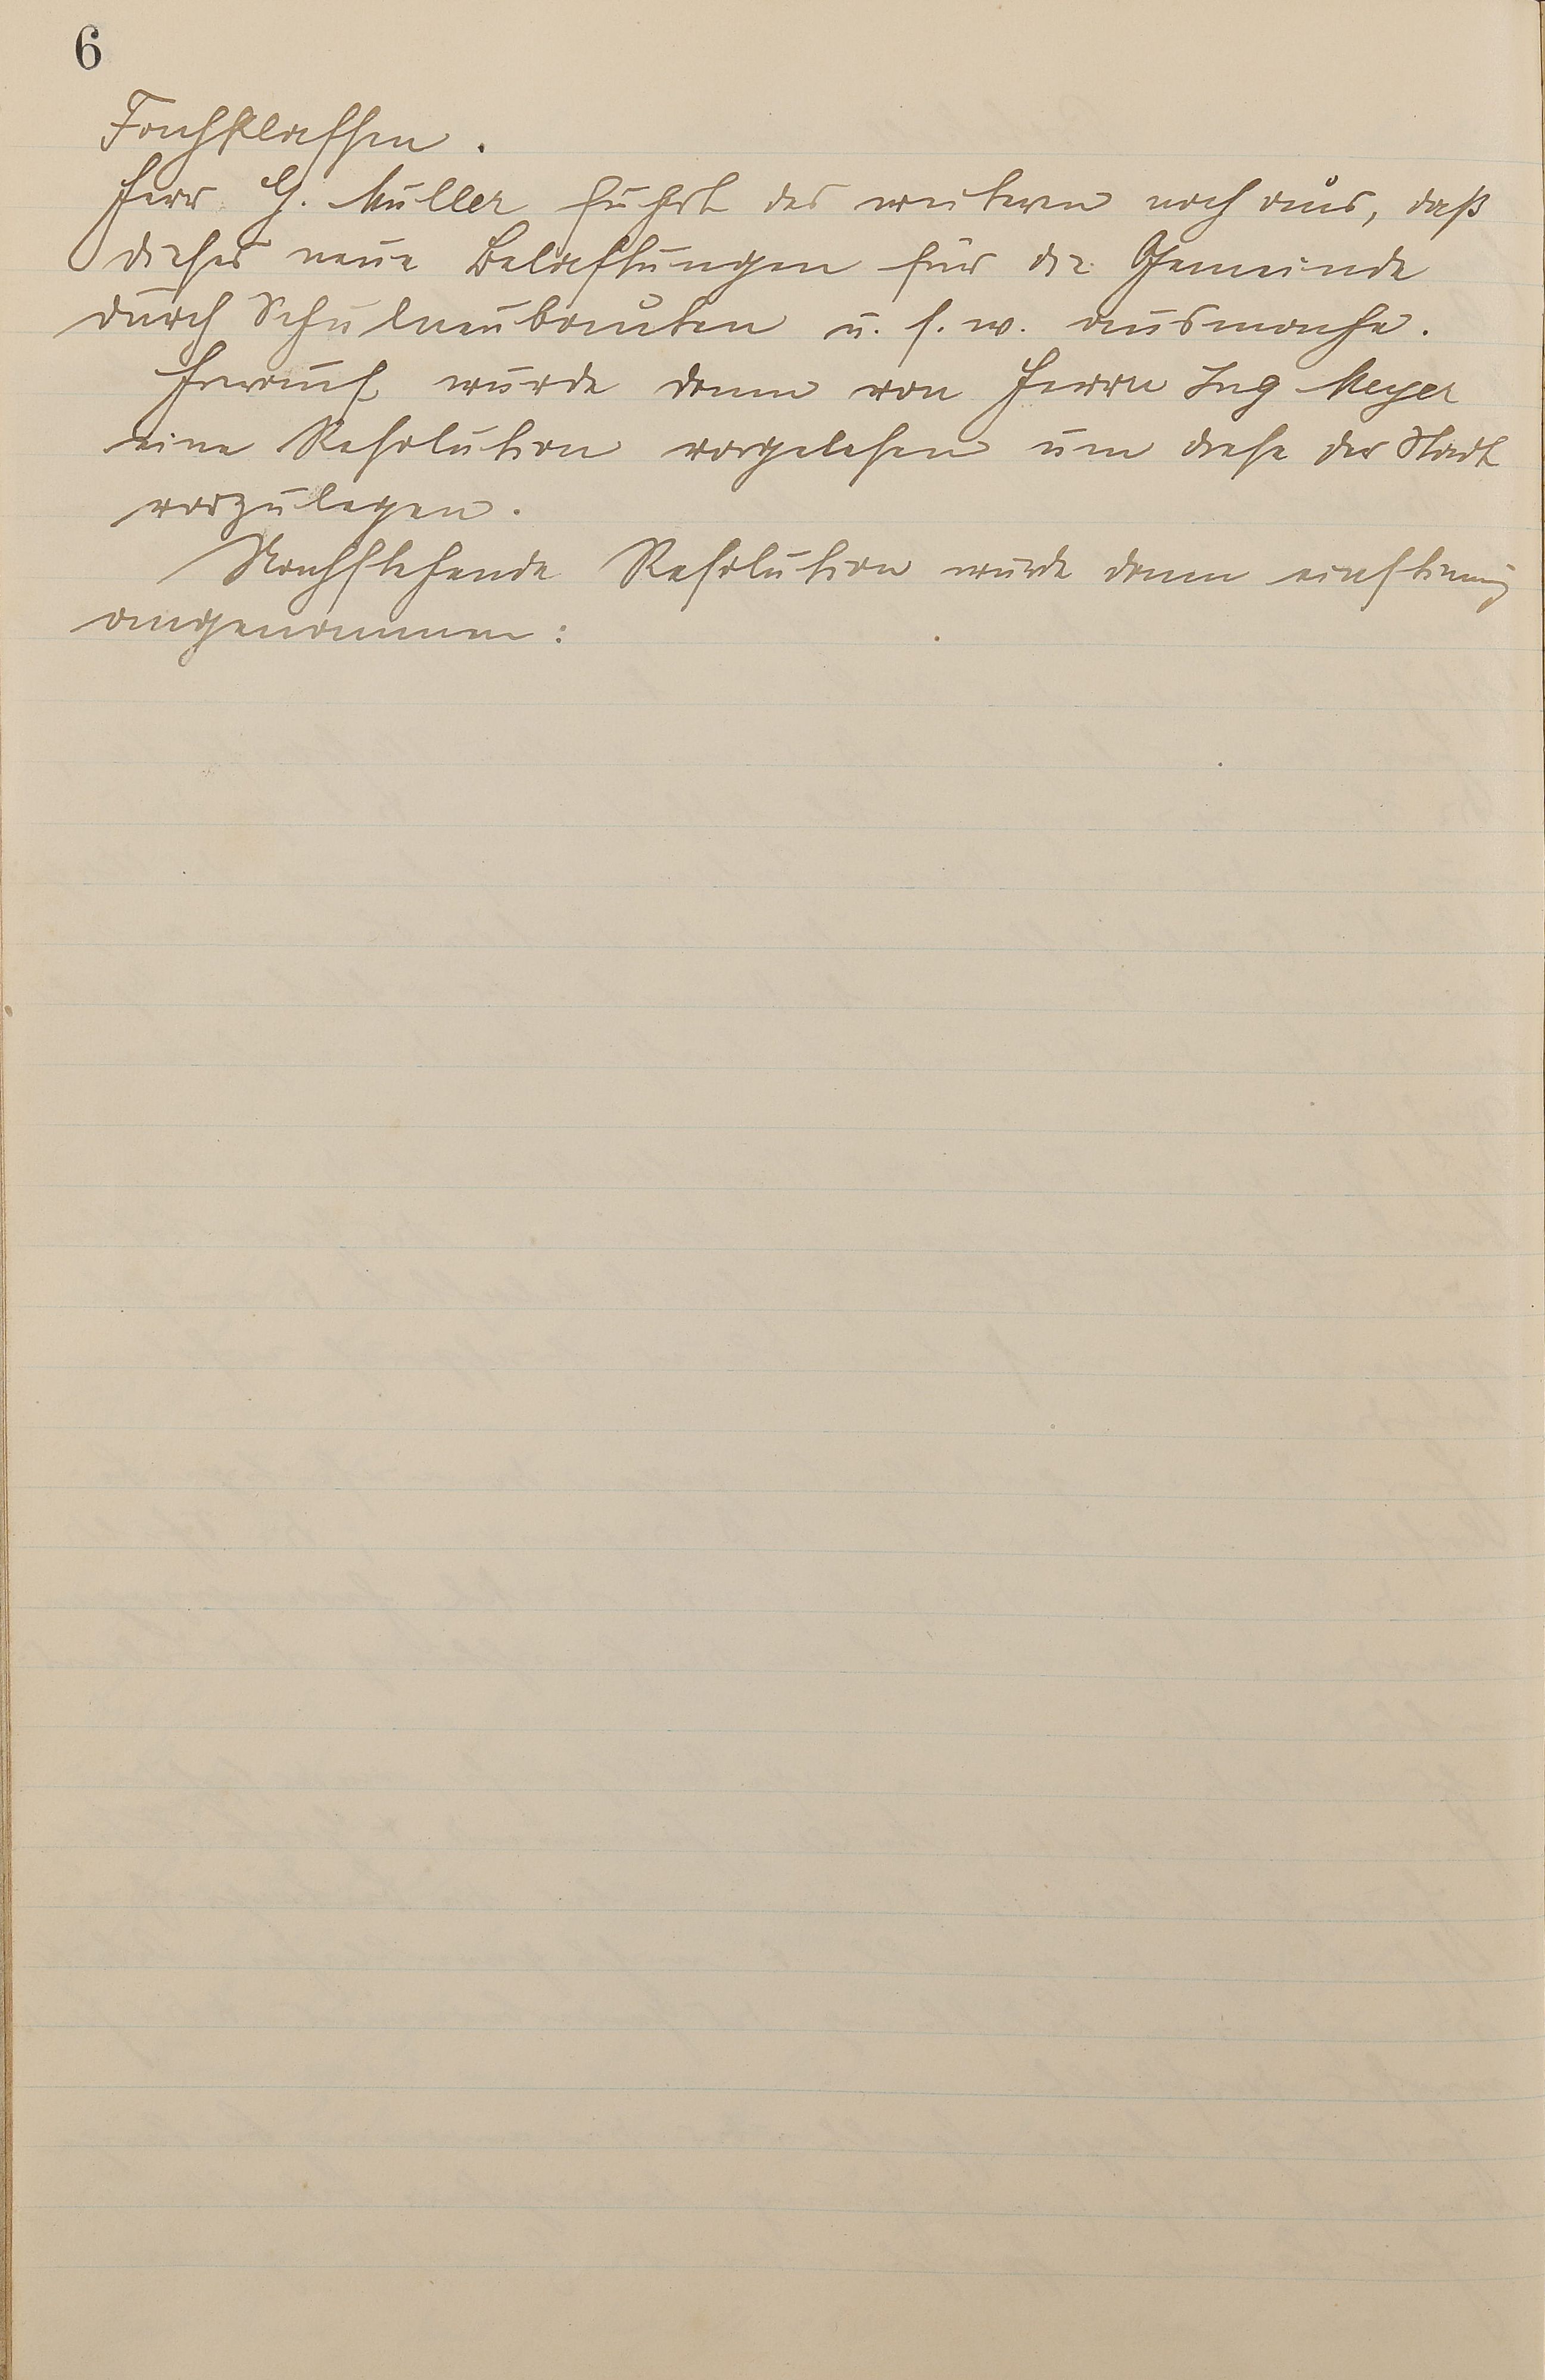 6
Fachklassen.
Herr G. Müller führt des weitern noch aus, daß
dieses neue Belastungen für die Gemeinde
durch Schulneubauten u. s. w. ausmache.
Hierauf wurde dann von Herrn Ing Meyer
eine Resolution vorgelesen um diese der Stadt
vorzulegen.
Nachstehende Resolution wurde dann einstimmig
angenommen: